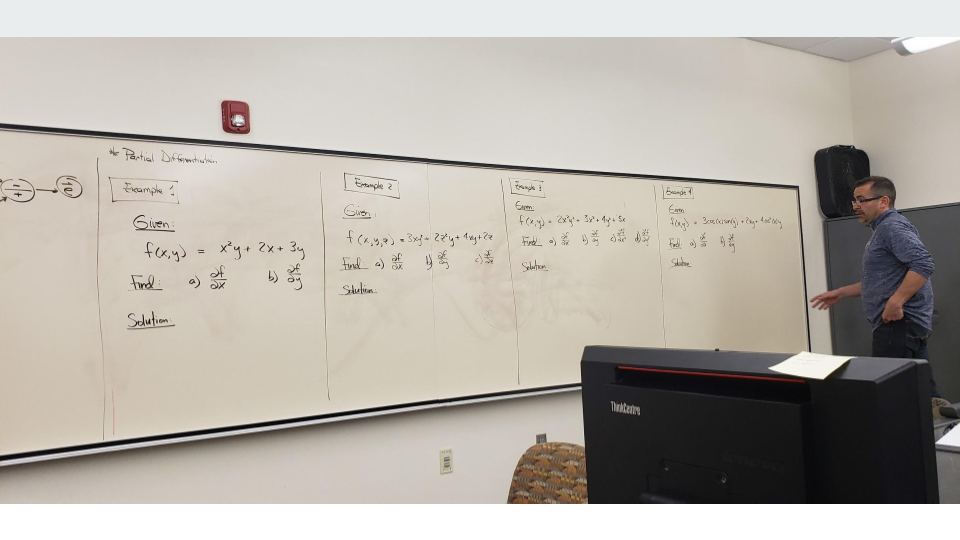 * Partial Differentiation
Example 1
Given:
f(x,y) = x²y + 2x + 3y
Find: a) ∂f/∂x b) ∂f/∂y
Solution:
Example 2
Given:
f(x,y,z) =
Find a) ∂f/∂x b) ∂f/∂y c) ∂f/∂z
Solution:
Example 3
Given:
f(x,y) =
Find a) ∂f/∂x b) ∂f/∂y c) d)
Solution:
Example 4
Given
f(x,y) = 3cos(x)sin(y) + 2xy +
Find a) ∂f/∂x b) ∂f/∂y
Solution
ThinkCentre